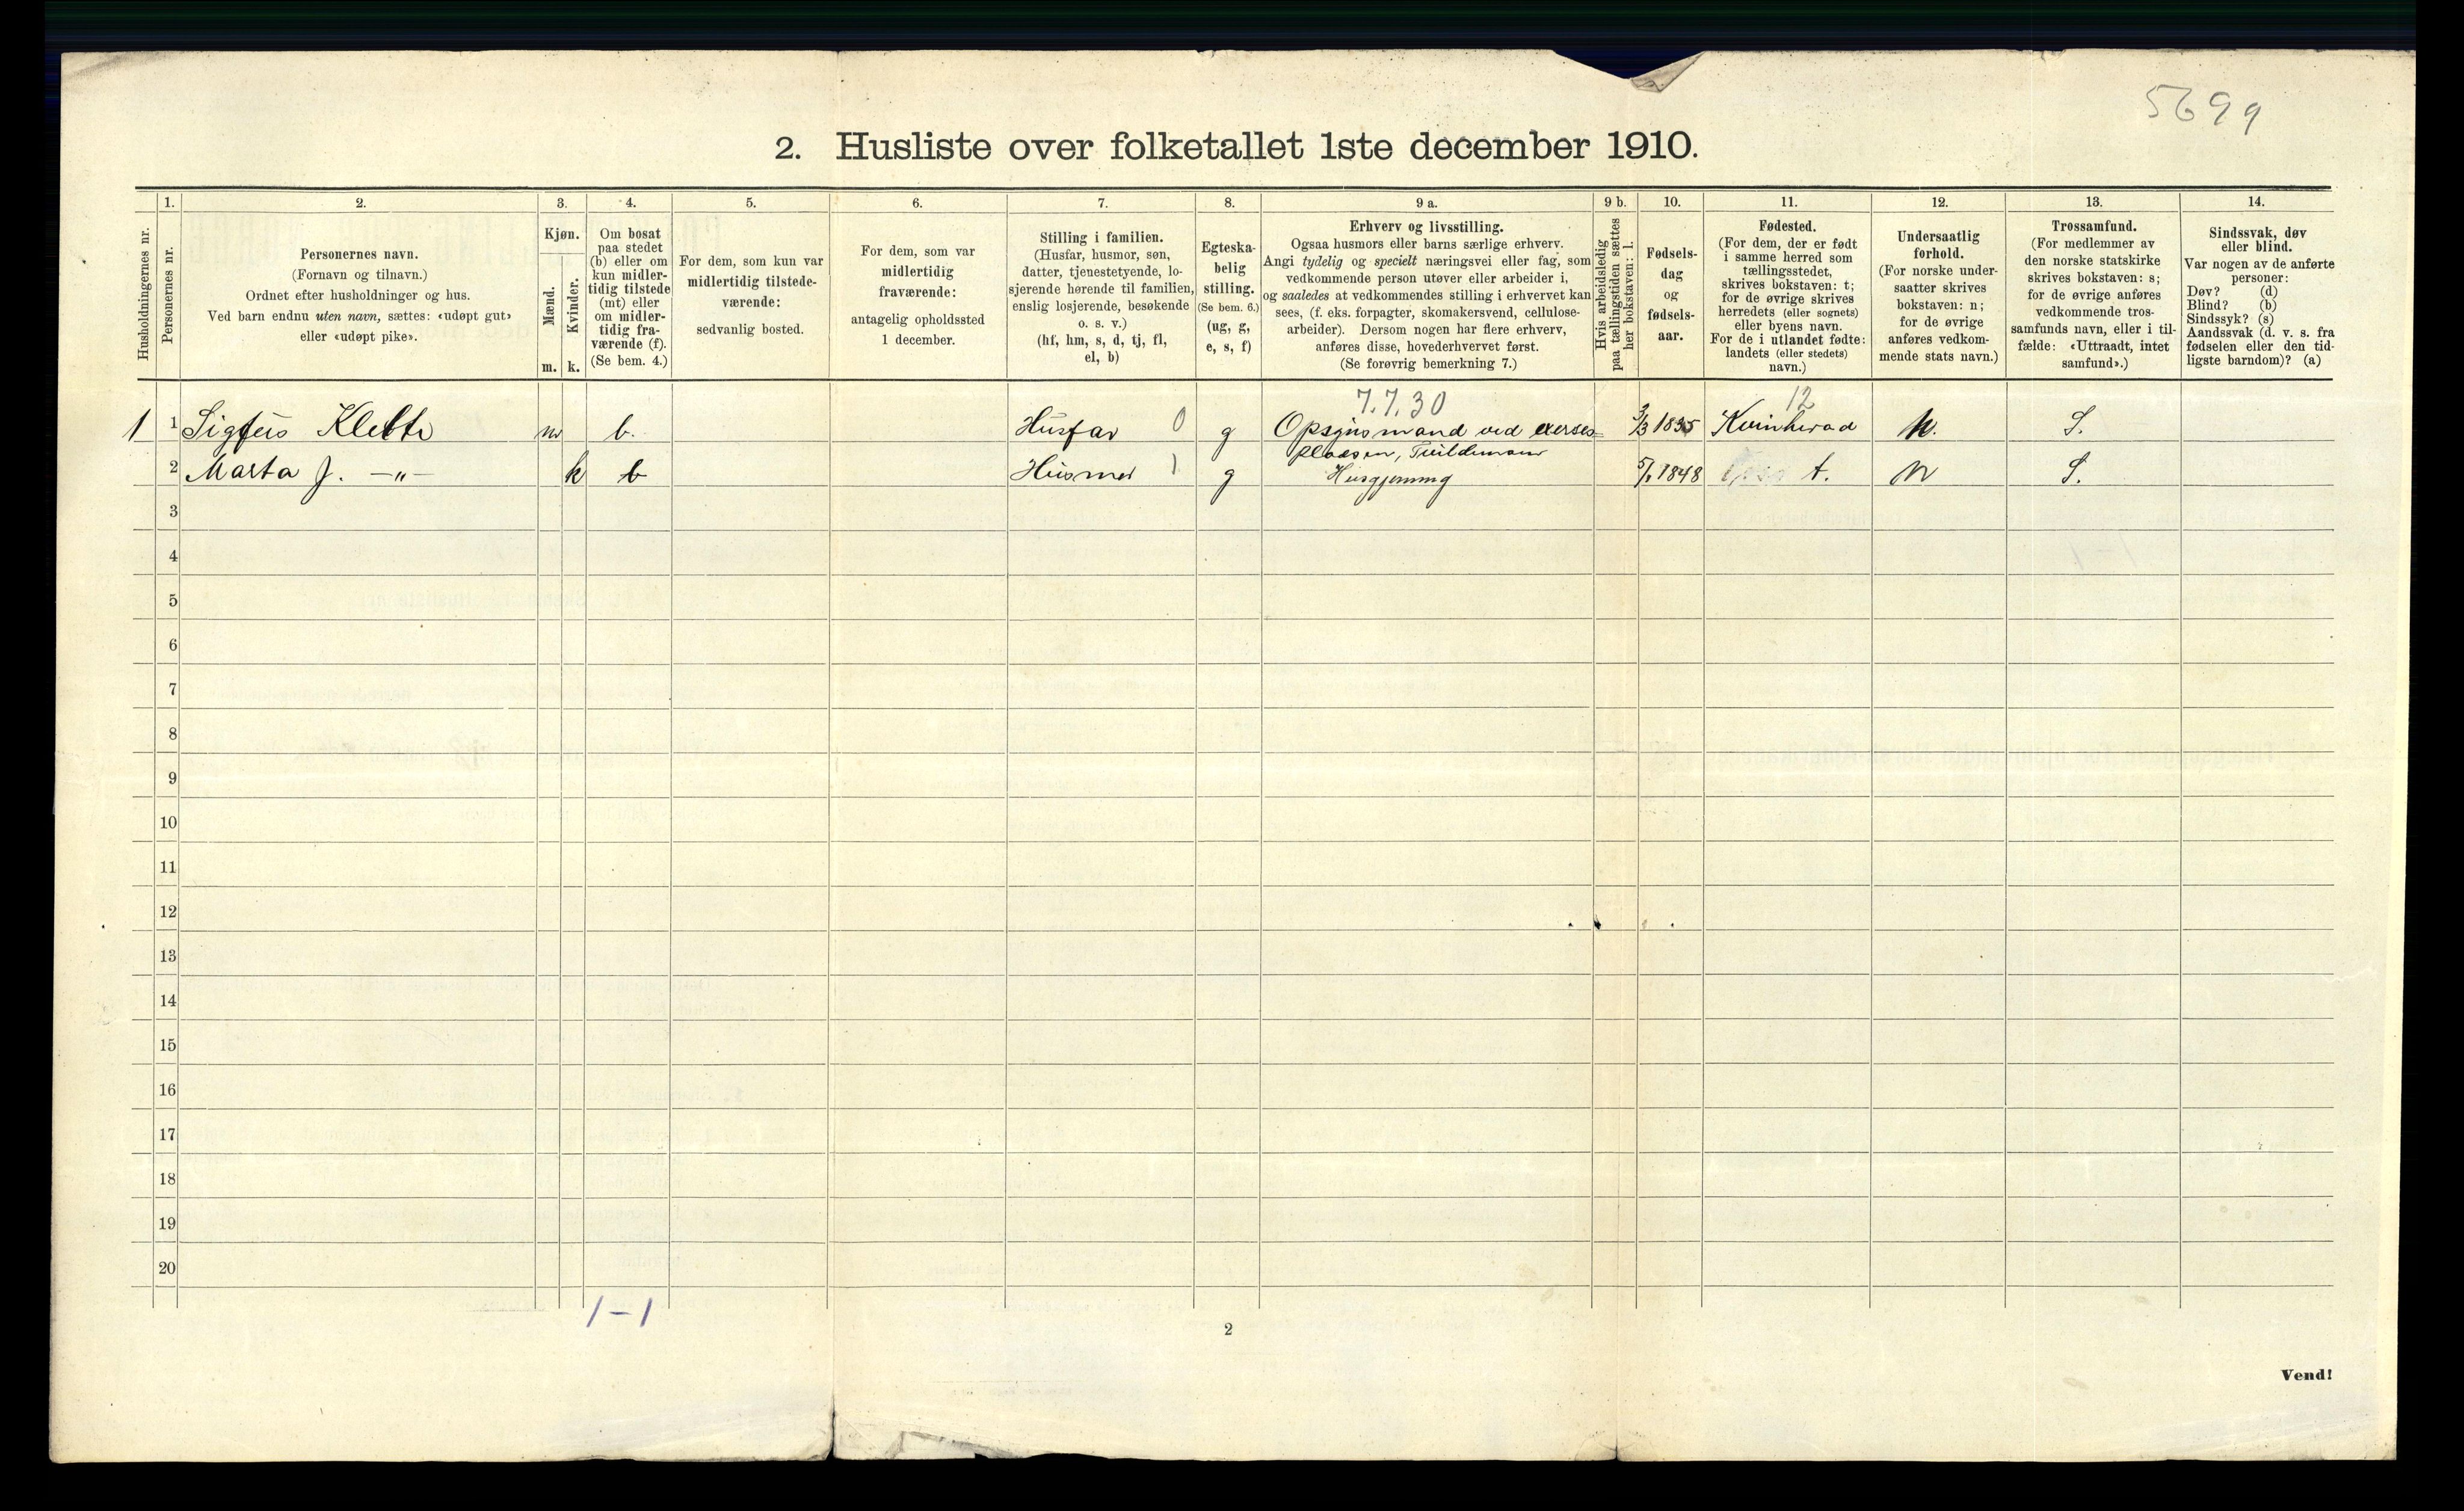 5699
2. Husliste over folketallet 1ste december 1910.
Husholdningernes nr.
1.
Personernes nr.
2.
Personernes navn.
(Fornavn og tilnavn.)
Ordnet efter husholdninger og hus.
Ved barn endnu uten navn, sættes: «udøpt gut»
eller «udøpt pike».
3.
Kjøn.
Mænd.
Kvinder.
m. k.
4.
Om bosat
paa stedet
(b) eller om
kun midler-
tidig tilstede
(mt) eller
om midler-
tidig fra-
værende (f).
(Se bem. 4.)
5.
For dem, som kun var
midlertidig tilstede-
værende:
sedvanlig bosted.
6.
For dem, som var
midlertidig
fraværende:
antagelig opholdssted
1 december.
7.
Stilling i familien.
(Husfar, husmor, søn,
datter, tjenestetyende, lo-
sjerende hørende til familien,
enslig losjerende, besøkende
o. s. v.)
(hf, hm, s, d, tj, fl,
el, b)
8.
Egteska-
belig
stilling.
(Se bem. 6.)
(ug, g,
e, s, f)
9 a.
Erhverv og livsstilling.
Ogsaa husmors eller barns særlige erhverv.
Angi tydelig og specielt næringsvei eller fag, som
vedkommende person utøver eller arbeider i,
og saaledes at vedkommendes stilling i erhvervet kan
sees, (f. eks. forpagter, skomakersvend, cellulose-
arbeider). Dersom nogen har flere erhverv,
anføres disse, hovederhvervet først.
(Se forøvrig bemerkning 7.)
9 b.
Hvis arbeidsledig
paa tællingstiden sættes
her bokstaven: l.
10.
Fødsels-
dag
og
fødsels-
aar.
11.
Fødested.
(For dem, der er født
i samme herred som
tællingsstedet,
skrives bokstaven: t;
for de øvrige skrives
herredets (eller sognets)
eller byens navn.
For de i utlandet fødte:
landets (eller stedets)
navn.)
12.
Undersaatlig
forhold.
(For norske under-
saatter skrives
bokstaven: n;
for de øvrige
anføres vedkom-
mende stats navn.)
13.
Trossamfund.
(For medlemmer av
den norske statskirke
skrives bokstaven: s;
for de øvrige anføres
vedkommende tros-
samfunds navn, eller i til-
fælde: «Uttraadt, intet
samfund».)
14.
Sindssvak, døv
eller blind.
Var nogen av de anførte
personer:
Døv? (d)
Blind? (b)
Sindssyk? (s)
Aandssvak (d. v. s. fra
fødselen eller den tid-
ligste barndom)? (a)
7.7.30 12
1 1 Sigfus m b. Husfar 0 g Opsynsmand ved exerses- 3/3 1835 Kvinherad N. S.
pladsen,
2 Marta J. —"— k b Husmor 1 g Husgjerning 1848 t. N S.
3
4
5
6
7
8
9
10
11
12
13
14
15
16
17
18
19
20
1-1
2
Vend!